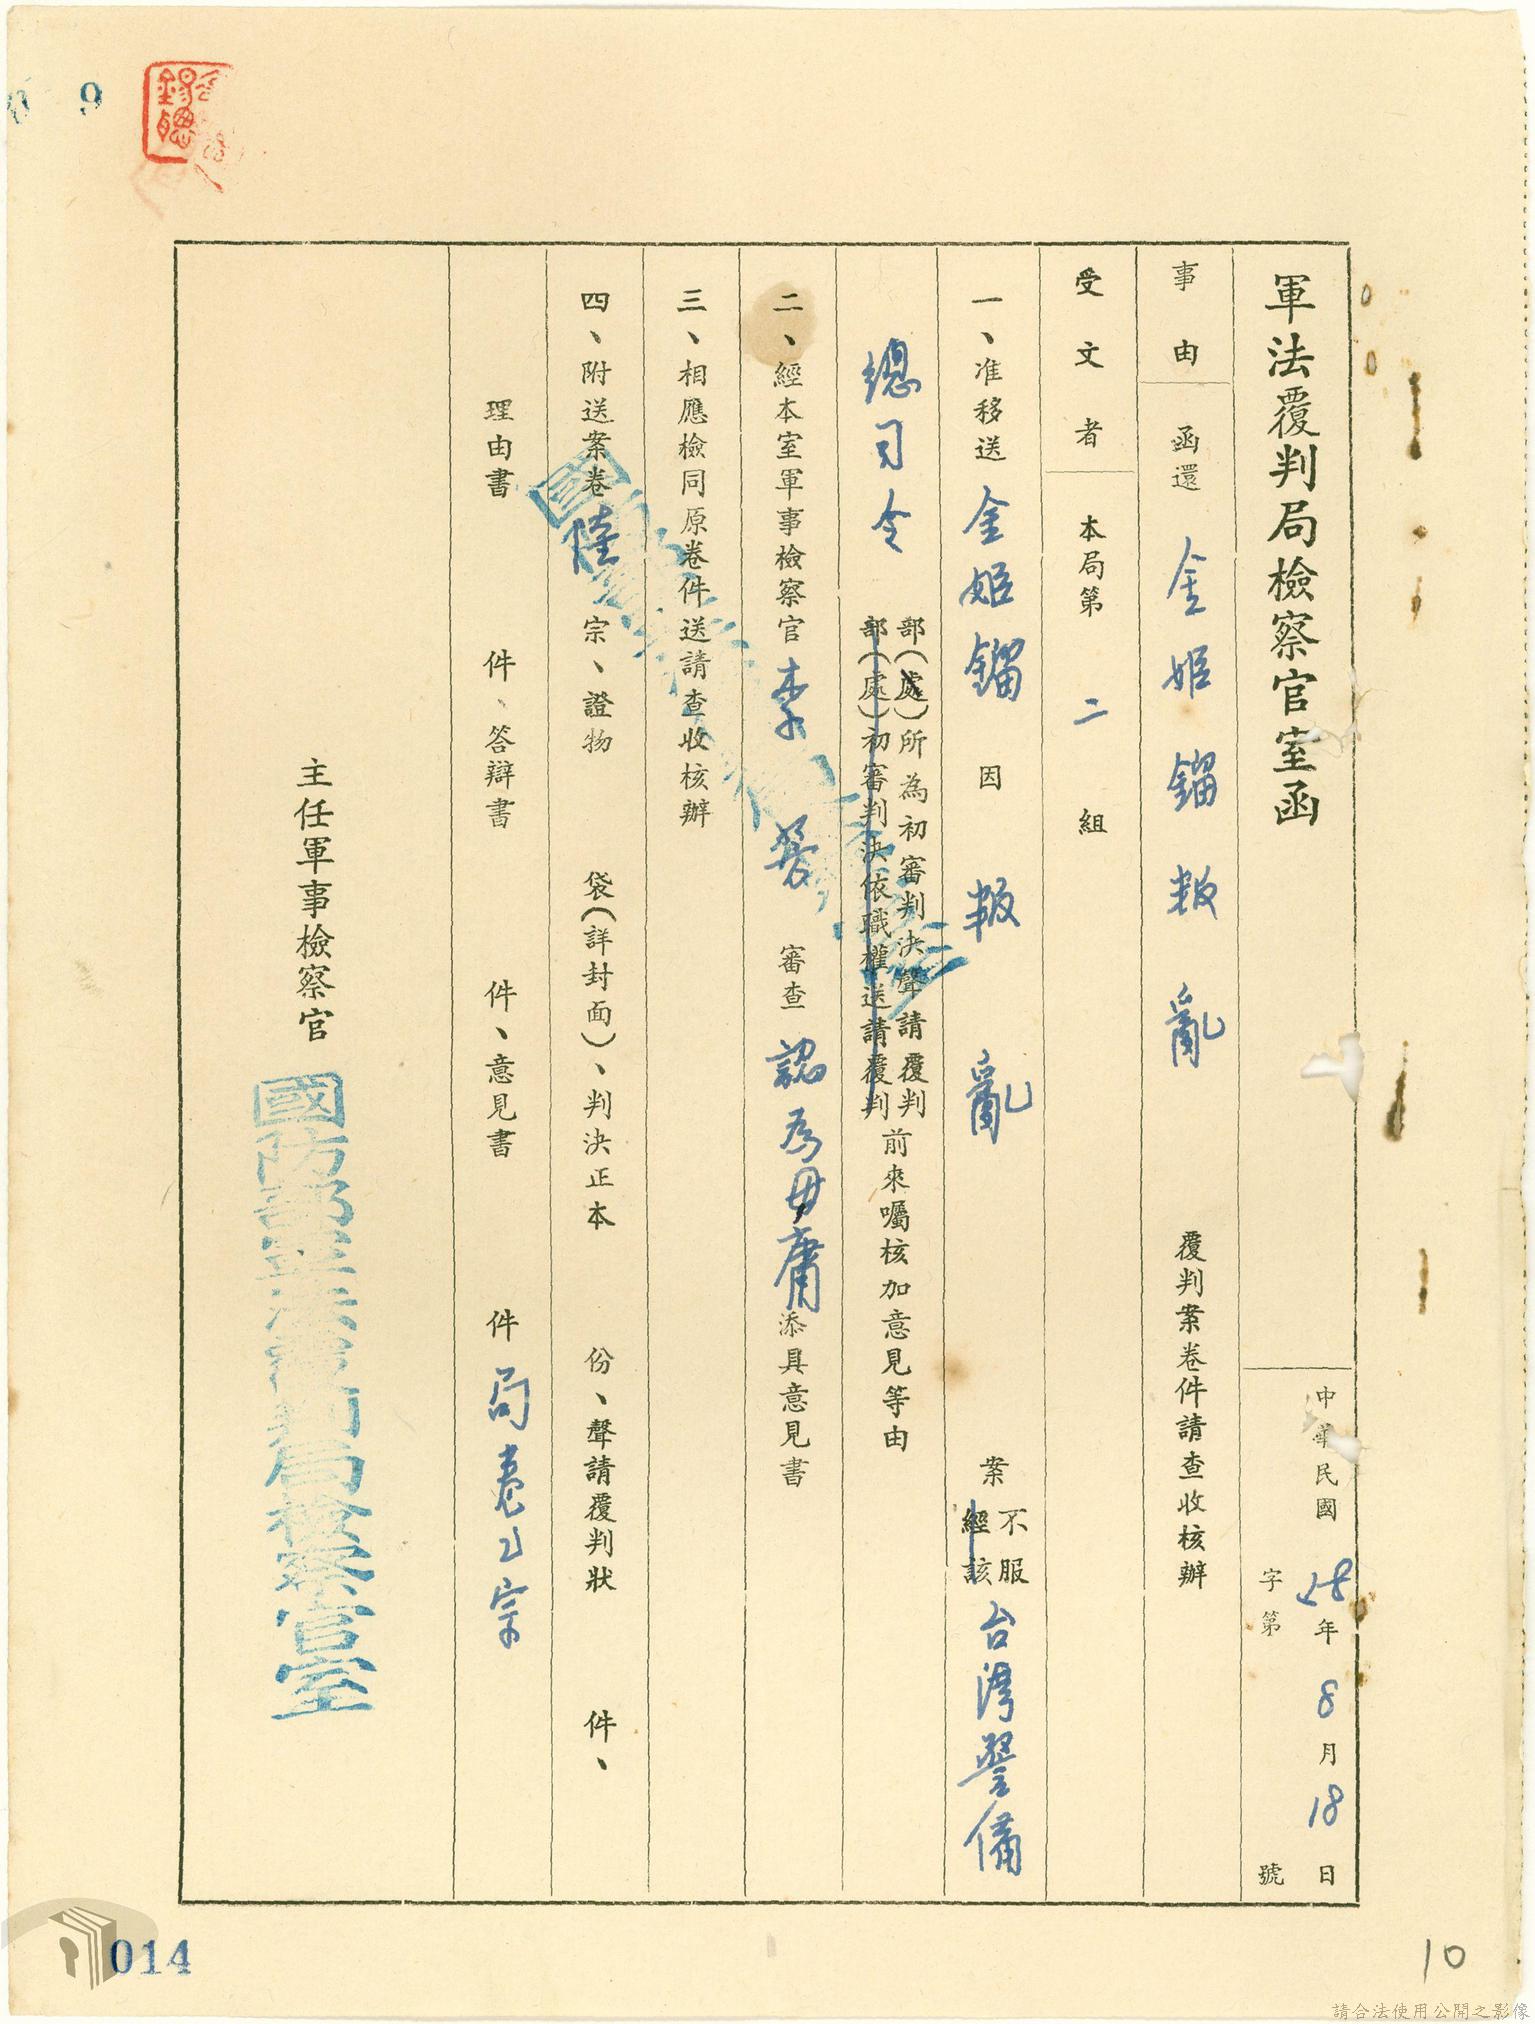 軍法覆判局檢察官室函
中華民國48年8月18日
字第 號
事由 函還 金姬鎦叛亂 覆判案卷件請查收核辦
受文者 本局第二組
一、准移送金姬鎦因叛亂案
不服
經該
台灣警備
總司令
部(處)所為初審判決聲請覆判
部(處)初審判決依職權送請覆判
前來囑核加意見等由
二、經本室軍事檢察官 審查認為毋庸添具意見書
三、相應檢同原卷件送請查收核辦
四、附送案卷陸宗、證物 袋(詳封面)、判決正本 份、聲請覆判狀 件、
理由書 件、答辯書 件、意見書 件 局卷乙宗
主任軍事檢察官
國防部軍法覆判局檢察官室
9
014
10
請合法使用公開之影像